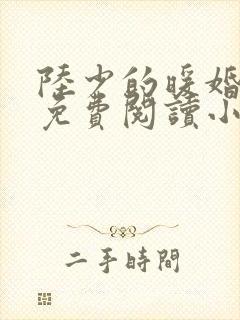 陸少的暖婚
免費閱讀小
二手時間